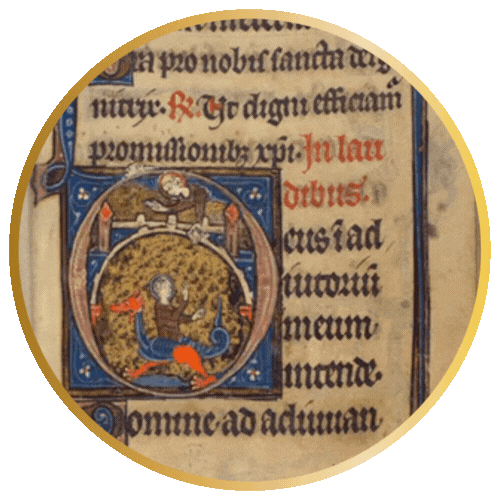 Ora pro nobis sancta dei g
nitrix. R. Ut digni efficiam̄
promissionibꝫ xp̄i. In lau
dibus.
Deus ī ad
iutoriū
meum
intende.
Domine ad adiuuan